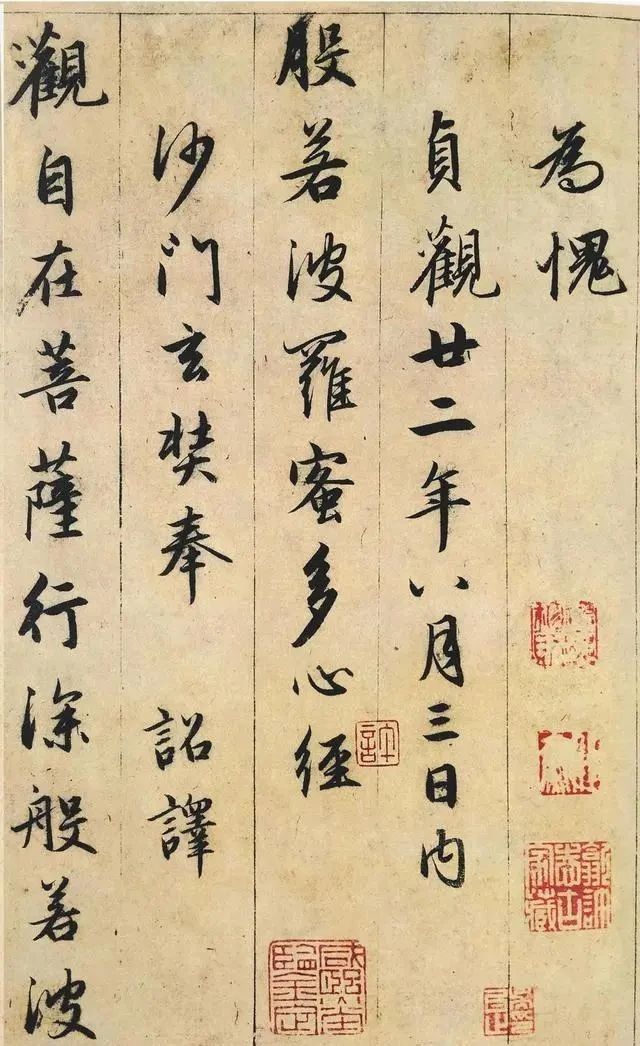 為愧
貞觀廿二年八月三日內
般若波羅蜜多心經
沙門玄奘奉 詔譯
觀自在菩薩行深般若波